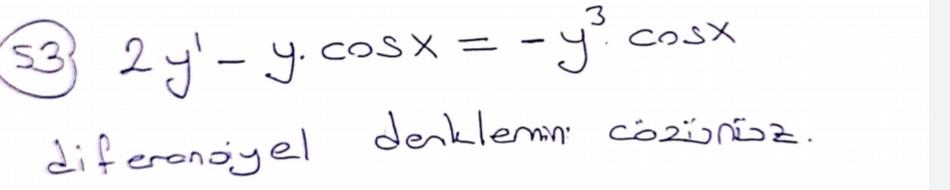 S3) 2y' - y.cosx = -y³.cosx
diferensiyel denklemini çözünüz.